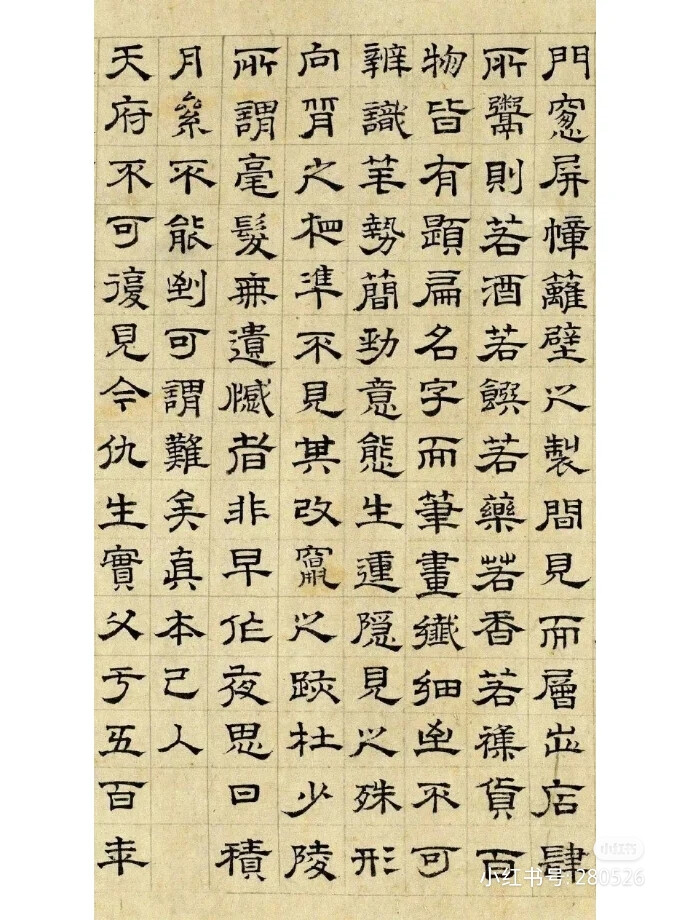 門窻屏幛籬壁之製間見而層出店肆
所鬻則若酒若饌若藥若香若雜貨百
物皆有題扁名字而筆畫纖細至不可
辨識笔勢簡勁意態生運隱見之殊形
向背之相準不見其改竄之跡杜少陵
所謂毫髮無遺憾者非早作夜思日積
月絫不能到可謂難矣真本已入
天府不可復見今仇生實父亏五百年
小红书
小红书号 280526